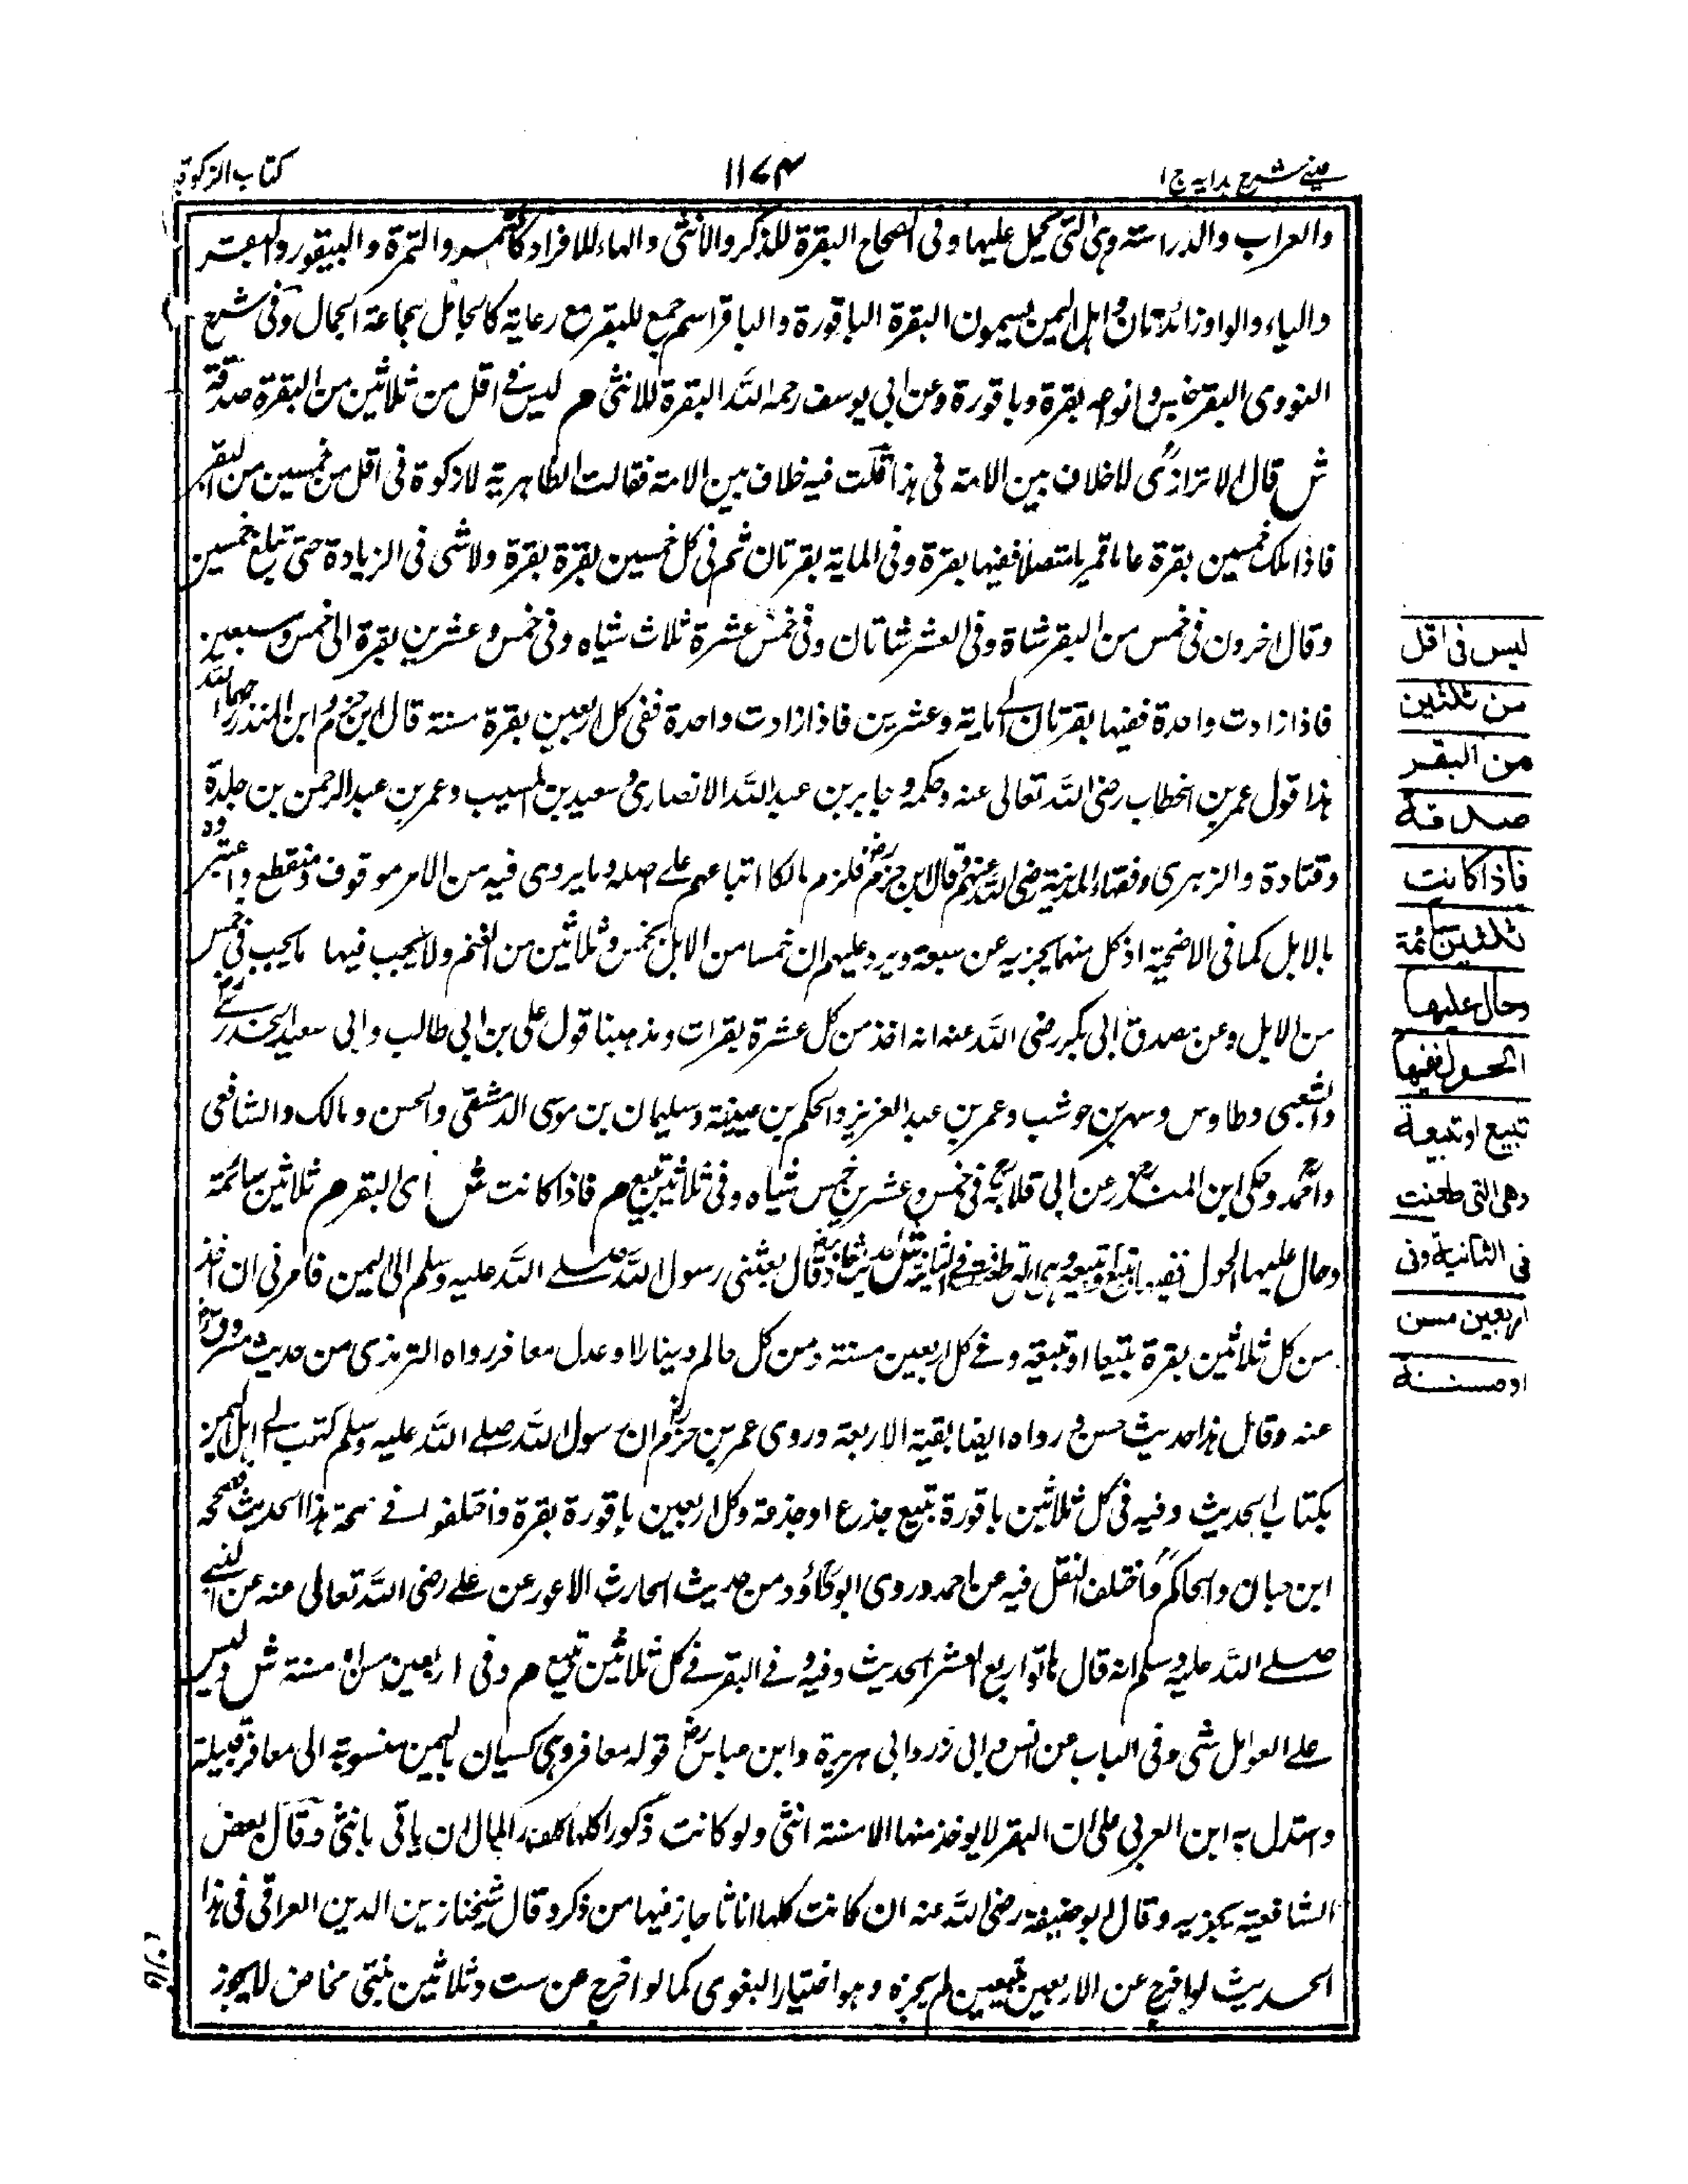 عینی شرح ہدایہ ج ۱
۱۱۷۴
کتاب الزکوة
والعراب والدراسته وہی التی یحمل علیہا وفی الصحاح البقرة للذکر والانثی والہاء للافراد کالتمر والتمرة والبیقور والبقر
والیاء والواو زائدتان واہل الیمن یسمون البقرة الباقورة والباقر اسم جمع للبقر مع رعایة کالجامل بجماعة الجمال وفی شرح
النووی البقر جنس وانوعہ بقرة وباقورة وعن ابی یوسف رحمہ اللہ البقرة للانثی م لیس فی اقل من ثلاثین من البقرة صدقة
ش قال الاترازی لاخلاف بین الامة فی ہذا قلت فیہ خلاف بین الامة فقالت الظاہریة لا زکوة فی اقل من خمسین من البقر
فاذا ملک خمسین بقرة عاما قمریا متصلا ففیہا بقرة وفی المایة بقرتان ثم فی کل خمسین بقرة بقرة ولاشی فی الزیادة حتی تبلغ خمسین
وقال اخرون فی خمس من البقر شاة وفی العشر شاتان وفی خمس عشرة ثلاث شیاہ وفی خمس وعشرین بقرة الی خمس وسبعین
فاذا زادت واحدة ففیہا بقرتان الی مایة وعشرین فاذا زادت واحدة ففی کل اربعین بقرة مسنة قال ابن حزم وابن المنذر رحمہما اللہ
ہذا قول عمر بن الخطاب رضی اللہ تعالی عنہ وحکمہ وجابر بن عبد اللہ الانصاری وسعید بن المسیب وعمر بن عبد الرحمن بن خلدة
وقتادة والزہری وفقہاء المدینة رضی اللہ عنہم قال ابن حزم فلزم مالکا اتباعہم علی اصلہ وما یروی فیہ من الامر موقوف ومنقطع واعتبروہ
بالابل کما فی الاضحیة اذ کل منہما یجزیہ عن سبعة ویرد علیہم ان خمسا من الابل بخمس وثلاثین من الغنم ولایجب فیہا مایجب فی خمس
من الابل وعن مصدق ابی بکر رضی اللہ عنہ انہ اخذ من کل عشرة بقرات ومذہبنا قول علی بن ابی طالب وابی سعید الخدری
والشعبی وطاوس وسہر بن حوشب وعمر بن عبد العزیز والحکم بن عیینة وسلیمان بن موسی الدمشقی والحسن ومالک والشافعی
واحمد وحکی ابن المنذر عن ابی قلابة فی خمس وعشرین خمس شیاہ وفی ثلاثین تبیع م فاذا کانت ش ای البقر م ثلاثین سائمة
وحال علیہا الحول ففیہا تبیع او تبیعة وہی التی طعنت فی الثانیة ش قال بعثنی رسول اللہ صلے اللہ علیہ وسلم الی الیمن فامرنی ان اخذ
من کل ثلاثین بقرة تبیعا او تبیعة وفی کل اربعین مسنة ومن کل حالم دینارا او عدل معافر رواہ الترمذی من حدیث مسروق
عنہ وقال ہذا حدیث حسن ورواہ ایضا بقیة الاربعة وروی عمر بن حزم ان رسول اللہ صلے اللہ علیہ وسلم کتب الی اہل الیمن
بکتاب الحدیث وفیہ فی کل ثلاثین باقورة تبیع جذع او جذعة وکل اربعین باقورة بقرة واختلفوا فی صحة ہذا الحدیث فصححہ
ابن حبان والحاکم واختلف النقل فیہ عن احمد وروی ابو داؤد من حدیث الحارث الاعور عن علے رضی اللہ تعالی عنہ عن النبی
صلے اللہ علیہ وسلم انہ قال ہاتوا ربع العشر الحدیث وفیہ وفی البقر فی کل ثلاثین تبیع م وفی اربعین مسن او مسنة ش ولیس
علے العوامل شی وفی الباب عن انس وابی ذر وابی ہریرة وابن عباس رض قولہ معافر وہی کسیان بالیمن منسوبة الی معافر قبیلة
واستدل بہ ابن العربی علی ان البقر لایوخذ منہا الامسنة انثی ولو کانت ذکورا کلہا کلف رب المال ان یاتی بانثی وقال بعض
الشافعیة یجزیہ وقال ابو حنیفة رضی اللہ عنہ ان کانت کلہا اناثا جاز فیہا من ذکر وقال شیخنا زین الدین العراقی فی ہذا
الحدیث لو اخرج عن الاربعین تبیعین لم یجزہ وہو اختیار البغوی کما لو اخرج عن ست وثلاثین بنتی مخاض لایجوز
لیس فی اقل
من ثلثین
من البقر
صدقة
فاذا کانت
ثلثین سائمة
وحال علیها
الحول ففیها
تبیع او تبیعة
وهی التی طعنت
فی الثانیة وفی
اربعین مسن
او مسنة